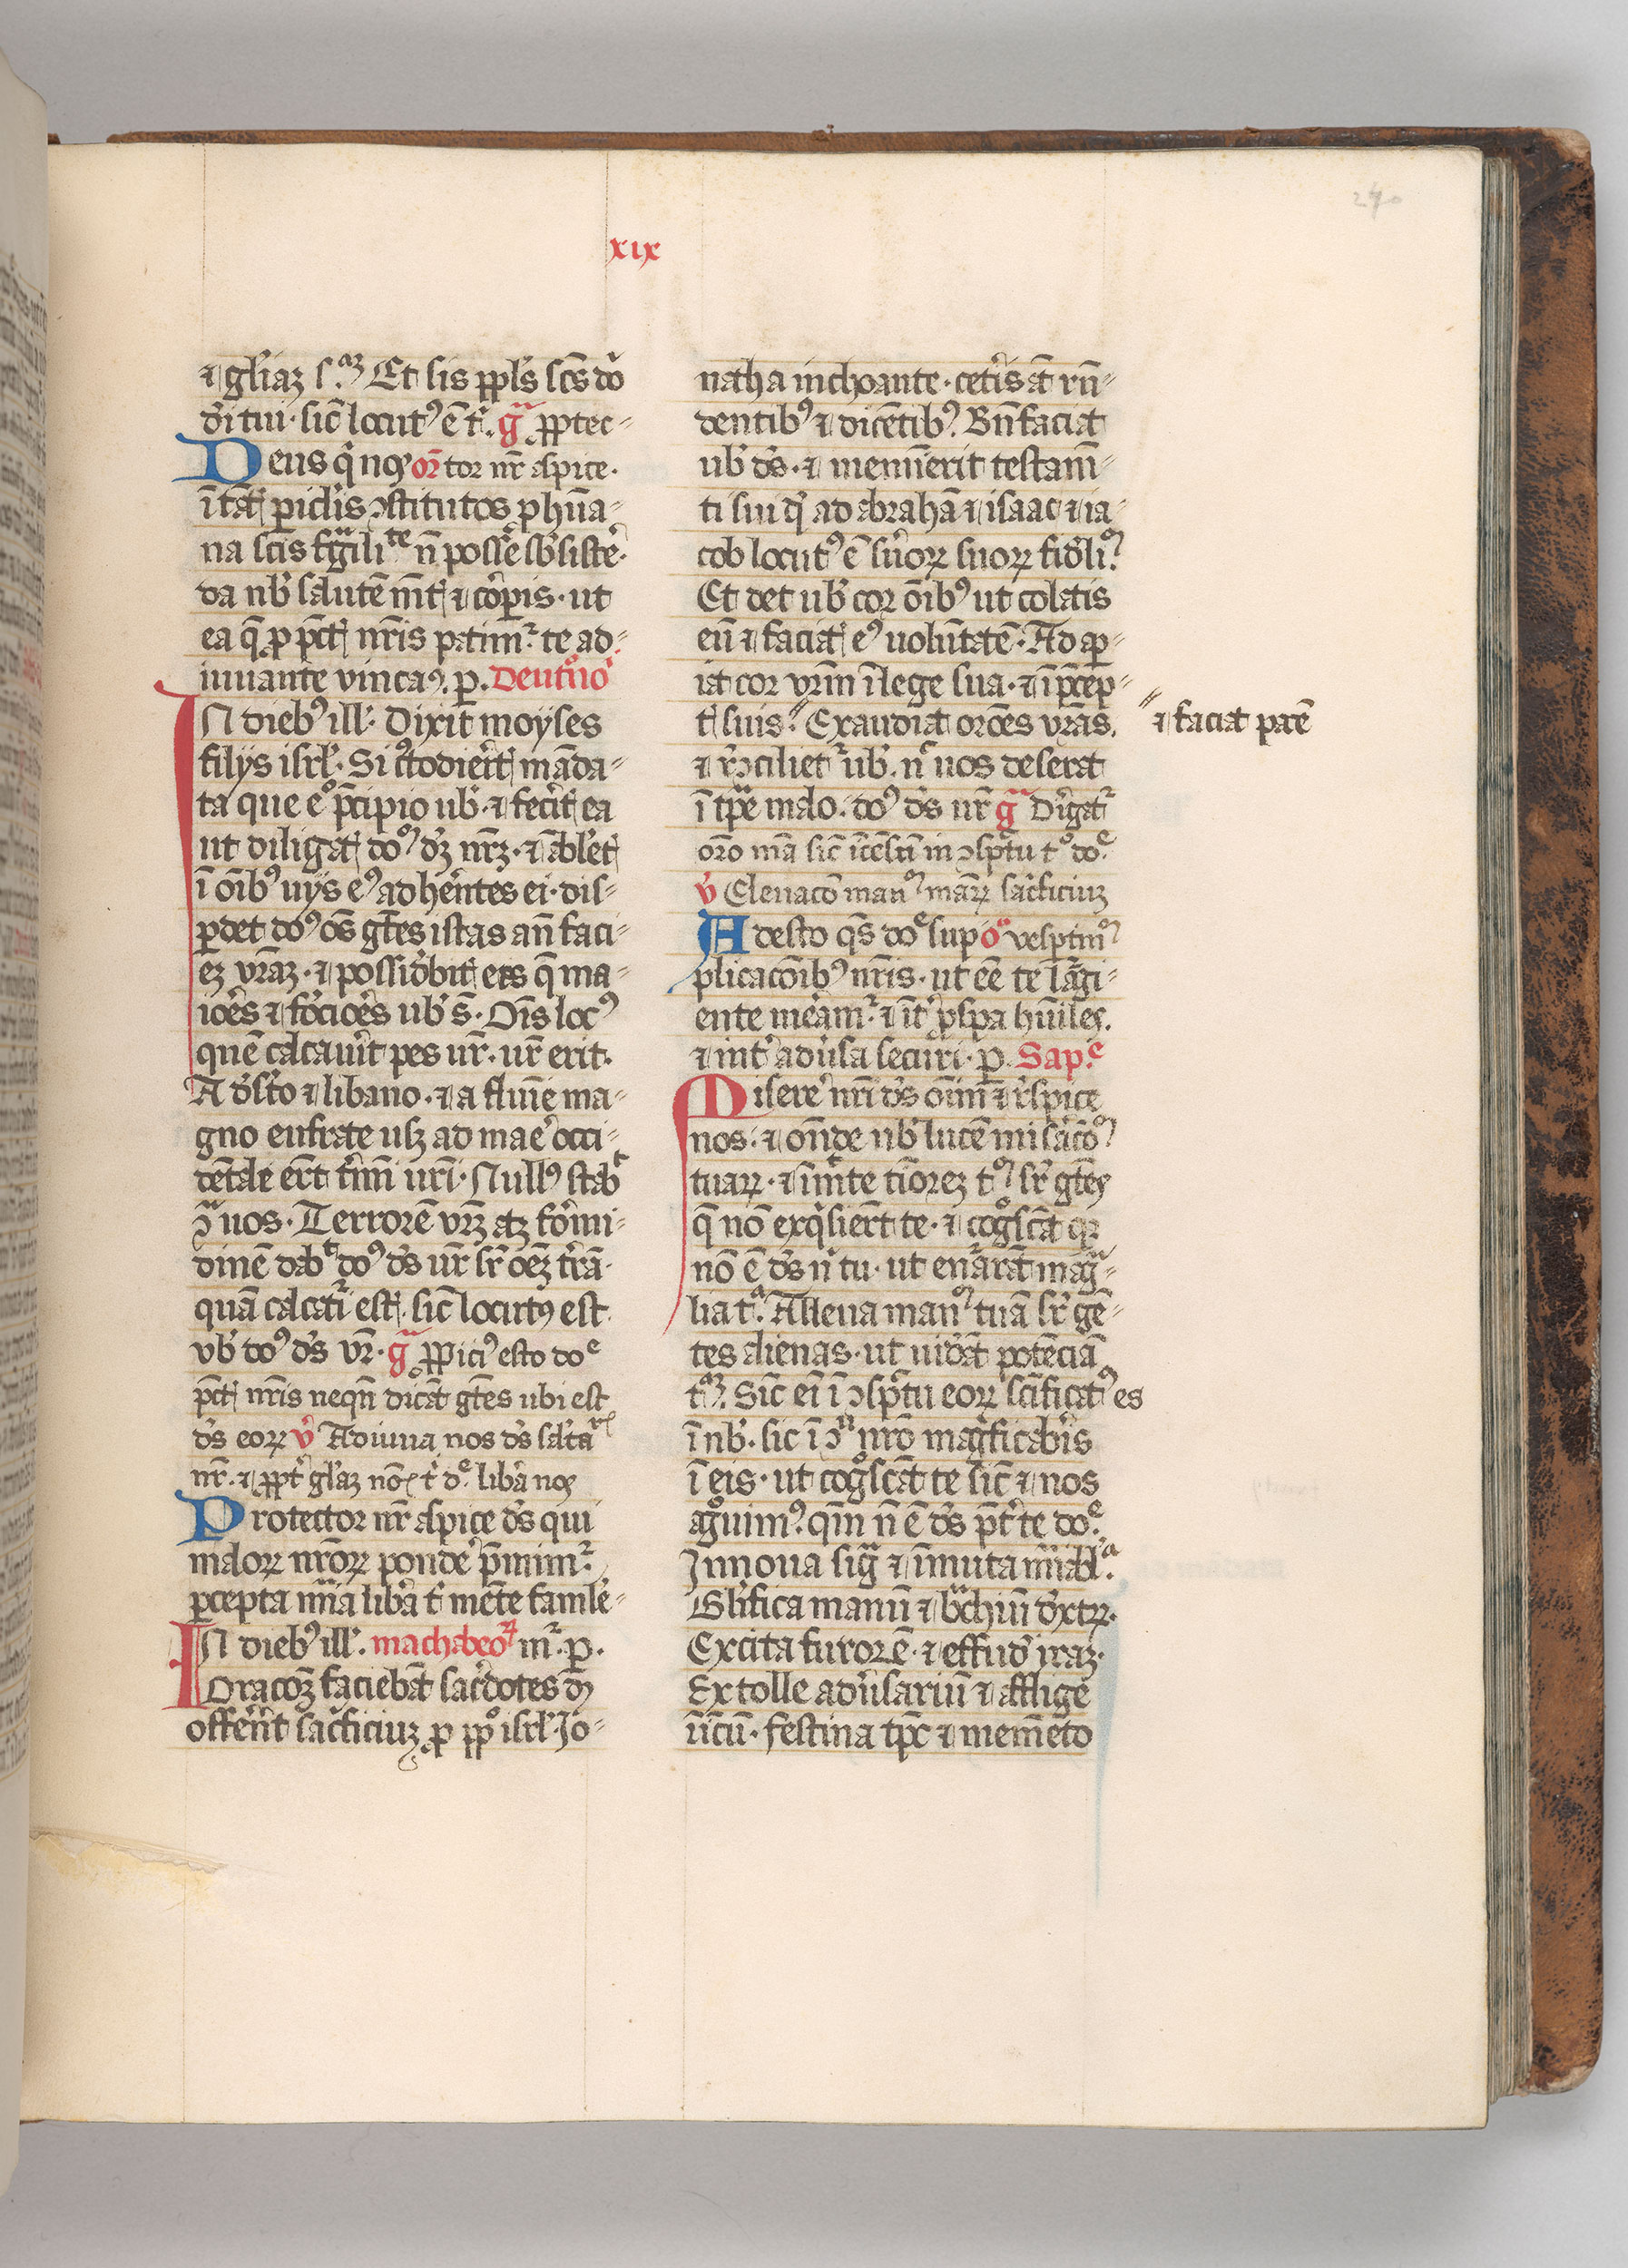 240
xix
⁊ gl'iaz s.az Et sis ppl's scs do
d'i tui · sic locut9 e t'. ga pptec-
Deus q' nos or tor nr aspice ·
i tat' pic'lis ɔstitutos p huma-
na scis fgili te n posse sbsiste'.
da nb' salute mt' ⁊ corpis · ut
ea q p pct' nris patim2 te ad-
iuuante vincam9. p. Deut'no'
IN dieb9 ill'. Dixit moyses
filijs isrl'. Si ctodierit' manda-
ta que e° pcipio ub' · ⁊ fecit' ea
ut diligat' do9 dz nrz · ⁊ abl'et'
i oib9 uijs e9 adhe'ntes ei · dis-
pdet do9 os gtes istas an faci-
ez vraz · ⁊ possidebit' eas q ma-
io'es ⁊ fo'cio'es ub' s · Ois loc9
que calcauit pes ur · ur erit.
A ds'to ⁊ libano · ⁊ a fluuie ma-
gno eufrate usz ad mae' occi-
detale er't t'mi uri · Null9 stab t
ɔa uos · Terrore vrz atz fo'mi-
dine dab t do9 ds ur sr' oez t'ra ·
qua calcat'i est' · sic locut9 est
vb' do9 ds vr · ga ppici9 esto do e
pct' nris neqn dicat gtes ubi est
ds eoꝝ v' Adiuua nos ds saluta'
nr. ⁊ ppt' gl'az nois t' do e liba nos
Protector nr aspice ds qui
maloꝝ nroꝝ ponde' pmim2
pcepta mia liba t' mete famle'-
IN dieb9 ill'. machabeoꝝ m2 · p.
Oracoz faciebat sac'dotes dm
offe'nt sac'ficiuz p ppo isrl' · Jo-
natha inchoante · cet'is at rn-
dentib9 ⁊ dicetib9. Bn faciat
ub' ds · ⁊ meminerit testam-
ti sui q' ad abraha ⁊ isaac ⁊ ia-
cob locut9 e s'uoꝝ suoꝝ fideli9.
Et det ub' cor oib9 ut colatis
eu ⁊ faciat' e9 uoluntate · Ad ap-
iat cor vrm i lege sua · ⁊ i pcep-
t' suis. Exaudiat oroes vras. ⁊ faciat pace
⁊ rɔciliet2 ub'. n' uos deserat
i tpe malo · do9 ds ur ga Dirigat2
oro ma sic icesu in ɔspctu t° do e
v' Eleuaco man9 maꝝ sac'ficiuz
Adesto qs do e sup o° vesptin9
plicacoib9 nris · ut ee te lagi-
ente meam2 · ⁊ it' pspa huiles.
⁊ int' adu'sa securi · p. Sap.e
Misere' nri ds oim ⁊ r'spice
nos · ⁊ onde nb' luce misaco9
tuaꝝ · ⁊ imitte tiorez t9 sr' gtes
q no exq'sier't te · ⁊ cog°scat qr
no e ds n' tu · ut enarat mag-
lia t.a Alleua man9 tua sr' ge-
tes alienas · ut uideat potencia
t.az Sic ei i ɔspctu eoꝝ scificat9 es
i nb'. sic i ɔu nro mag'ficab'is
i eis · ut cog°scat te sic ⁊ nos
ag°uim9. qm n e ds pt' te do e.
Innoua sig ⁊ imuta miabl.a
Gl'ifica manu ⁊ bchiu d'xtꝝ.
Excita furore · ⁊ effud' iraz ·
Extolle adu'sariu ⁊ afflige
inicu · festina tpc ⁊ memeto